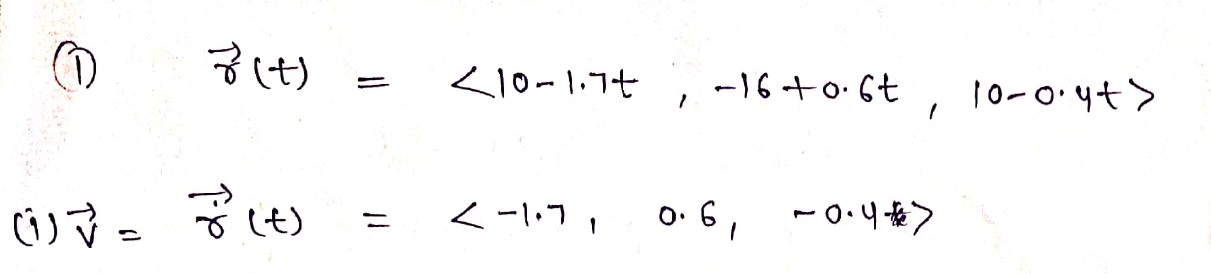 ① r⃗(t) = <10-1.7t, -16+0.6t, 10-0.4t>
(i) v⃗ = ṙ⃗(t) = <-1.7, 0.6, -0.4>